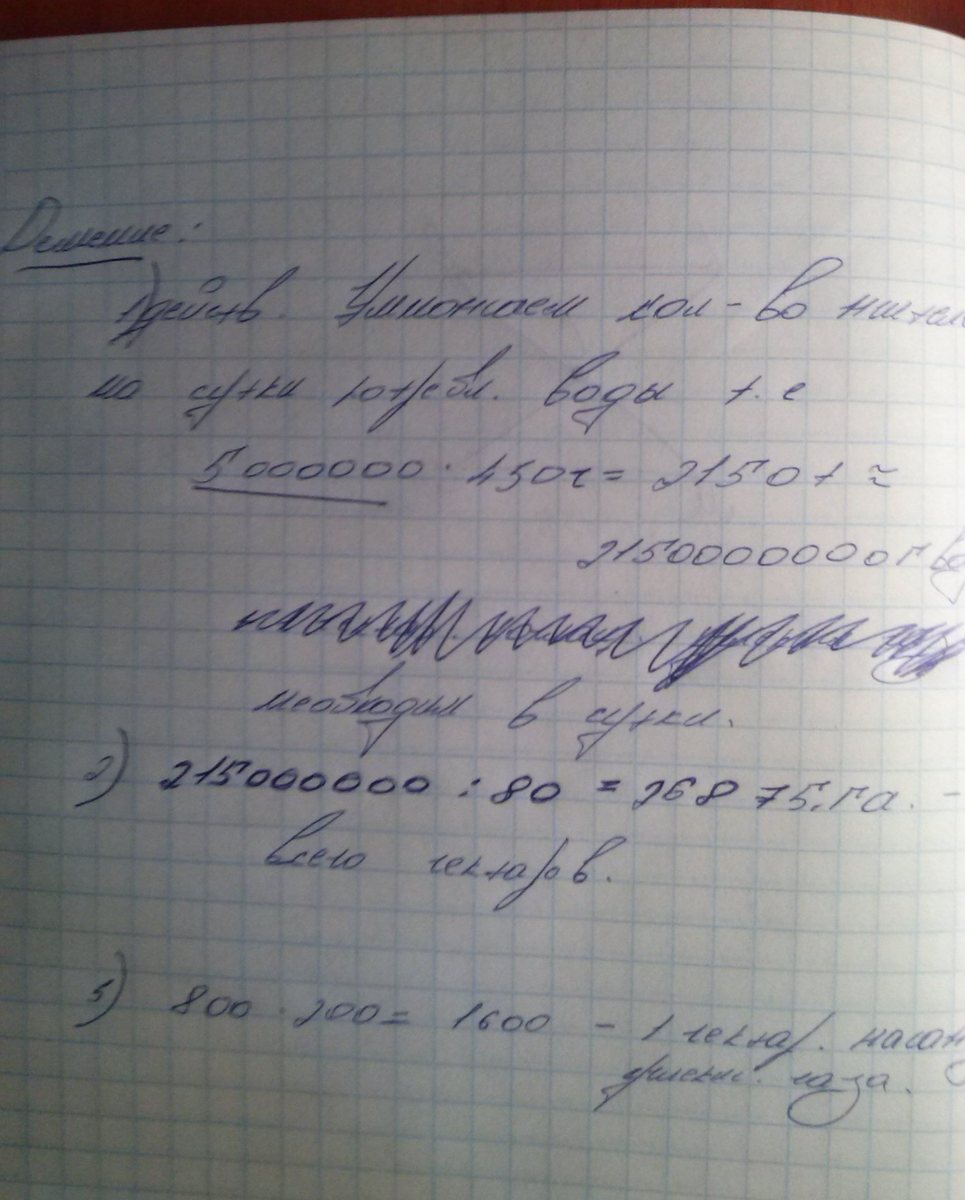 Решение:
1) действ. Умножаем кол-во жител
на сутки потребл. воды т. е
5000000 · 430г = 2150 т ≈
2150000000 г
необходим в сутки.
2) 215000000 : 80 = 268 75. га. -
всего гектаров.
3) 800 · 200 = 1600 - 1 гектар. насаж
газа.